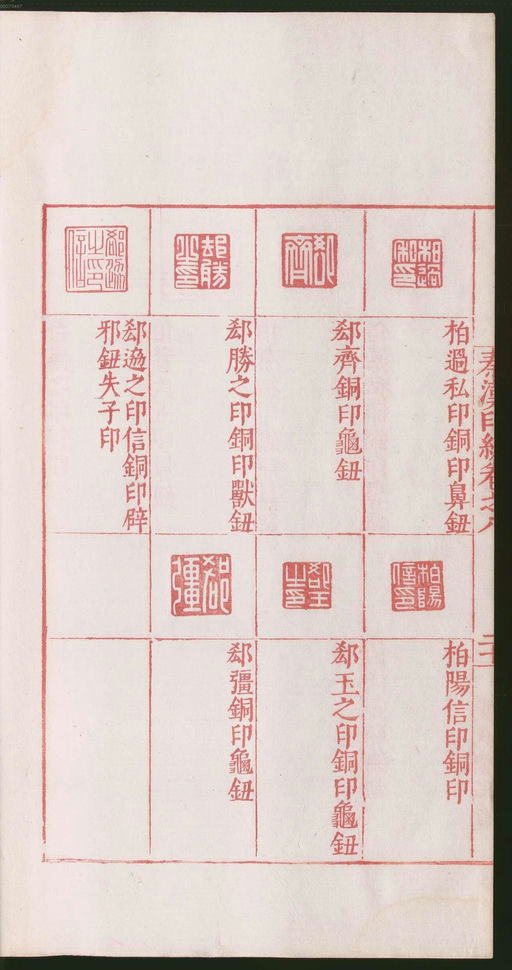 秦漢印統卷之八
二十
柏過私印銅印鼻鈕
柏陽信印銅印
郄齊銅印龜鈕
郄玉之印銅印龜鈕
郄勝之印銅印獸鈕
郄彊銅印龜鈕
郄過之印信銅印辟
邪鈕失子印